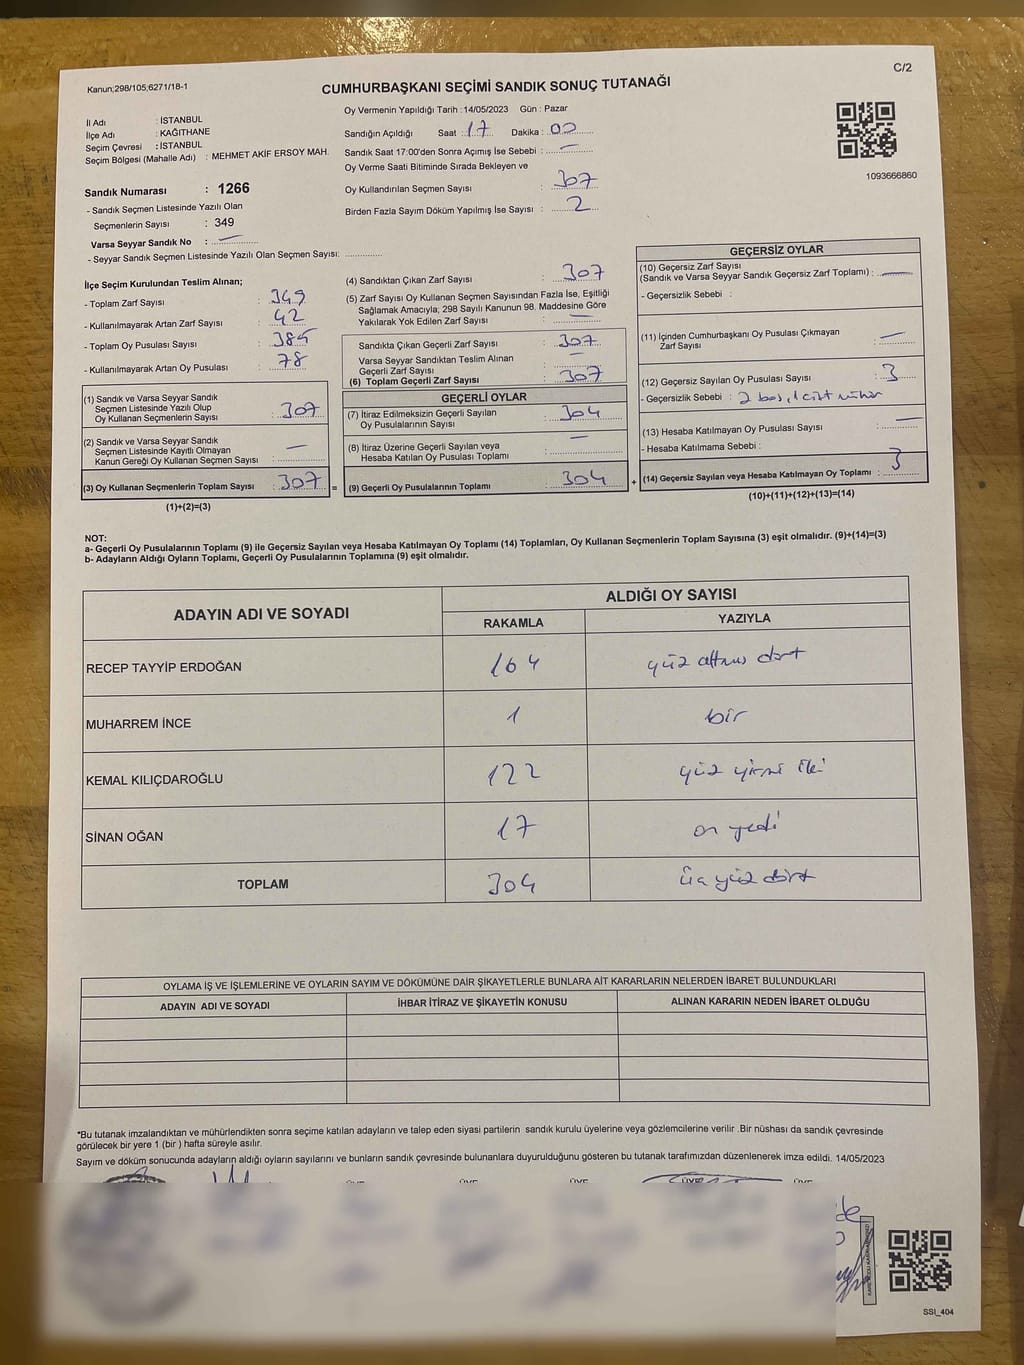 C/2
Kanun;298/105;6271/18-1
CUMHURBAŞKANI SEÇİMİ SANDIK SONUÇ TUTANAĞI
İl Adı : İSTANBUL
İlçe Adı : KAĞITHANE
Seçim Çevresi : İSTANBUL
Seçim Bölgesi (Mahalle Adı) : MEHMET AKİF ERSOY MAH.
Sandık Numarası : 1266
- Sandık Seçmen Listesinde Yazılı Olan
Seçmenlerin Sayısı : 349
Varsa Seyyar Sandık No :
- Seyyar Sandık Seçmen Listesinde Yazılı Olan Seçmen Sayısı:
Oy Vermenin Yapıldığı Tarih :14/05/2023 Gün : Pazar
Sandığın Açıldığı Saat : 17 Dakika : 00
Sandık Saat 17:00'den Sonra Açımış İse Sebebi : —
Oy Verme Saati Bitiminde Sırada Bekleyen ve
Oy Kullandırılan Seçmen Sayısı : 307
Birden Fazla Sayım Döküm Yapılmış İse Sayısı : 2
1093666860
İlçe Seçim Kurulundan Teslim Alınan;
- Toplam Zarf Sayısı : 349
- Kullanılmayarak Artan Zarf Sayısı : 42
- Toplam Oy Pusulası Sayısı : 385
- Kullanılmayarak Artan Oy Pusulası : 78
(1) Sandık ve Varsa Seyyar Sandık
Seçmen Listesinde Yazılı Olup
Oy Kullanan Seçmenlerin Sayısı : 307
(2) Sandık ve Varsa Seyyar Sandık
Seçmen Listesinde Kayıtlı Olmayan
Kanun Gereği Oy Kullanan Seçmen Sayısı : —
(3) Oy Kullanan Seçmenlerin Toplam Sayısı : 307
(1)+(2)=(3)
(4) Sandıktan Çıkan Zarf Sayısı : 307
(5) Zarf Sayısı Oy Kullanan Seçmen Sayısından Fazla İse, Eşitliği
Sağlamak Amacıyla; 298 Sayılı Kanunun 98. Maddesine Göre
Yakılarak Yok Edilen Zarf Sayısı : —
Sandıkta Çıkan Geçerli Zarf Sayısı : 307
Varsa Seyyar Sandıktan Teslim Alınan
Geçerli Zarf Sayısı : —
(6) Toplam Geçerli Zarf Sayısı : 307
GEÇERLİ OYLAR
(7) İtiraz Edilmeksizin Geçerli Sayılan
Oy Pusulalarının Sayısı : 304
(8) İtiraz Üzerine Geçerli Sayılan veya
Hesaba Katılan Oy Pusulası Toplamı : —
= (9) Geçerli Oy Pusulalarının Toplamı : 304
GEÇERSİZ OYLAR
(10) Geçersiz Zarf Sayısı
(Sandık ve Varsa Seyyar Sandık Geçersiz Zarf Toplamı) : —
- Geçersizlik Sebebi :
(11) İçinden Cumhurbaşkanı Oy Pusulası Çıkmayan
Zarf Sayısı : —
(12) Geçersiz Sayılan Oy Pusulası Sayısı : 3
- Geçersizlik Sebebi : 2 boş, 1 çift mühür
(13) Hesaba Katılmayan Oy Pusulası Sayısı : —
- Hesaba Katılmama Sebebi :
+ (14) Geçersiz Sayılan veya Hesaba Katılmayan Oy Toplamı : 3
(10)+(11)+(12)+(13)=(14)
NOT:
a- Geçerli Oy Pusulalarının Toplamı (9) ile Geçersiz Sayılan veya Hesaba Katılmayan Oy Toplamı (14) Toplamları, Oy Kullanan Seçmenlerin Toplam Sayısına (3) eşit olmalıdır. (9)+(14)=(3)
b- Adayların Aldığı Oyların Toplamı, Geçerli Oy Pusulalarının Toplamına (9) eşit olmalıdır.
ADAYIN ADI VE SOYADI ALDIĞI OY SAYISI
RAKAMLA YAZIYLA
RECEP TAYYİP ERDOĞAN 164 yüz altmış dört
MUHARREM İNCE 1 bir
KEMAL KILIÇDAROĞLU 122 yüz yirmi iki
SİNAN OĞAN 17 on yedi
TOPLAM 304 üç yüz dört
OYLAMA İŞ VE İŞLEMLERİNE VE OYLARIN SAYIM VE DÖKÜMÜNE DAİR ŞİKAYETLERLE BUNLARA AİT KARARLARIN NELERDEN İBARET BULUNDUKLARI
ADAYIN ADI VE SOYADI İHBAR İTİRAZ VE ŞİKAYETİN KONUSU ALINAN KARARIN NEDEN İBARET OLDUĞU
*Bu tutanak imzalandıktan ve mühürlendikten sonra seçime katılan adayların ve talep eden siyasi partilerin sandık kurulu üyelerine veya gözlemcilerine verilir .Bir nüshası da sandık çevresinde
görülecek bir yere 1 (bir ) hafta süreyle asılır.
Sayım ve döküm sonucunda adayların aldığı oyların sayılarını ve bunların sandık çevresinde bulunanlara duyurulduğunu gösteren bu tutanak tarafımızdan düzenlenerek imza edildi. 14/05/2023
SSI_404